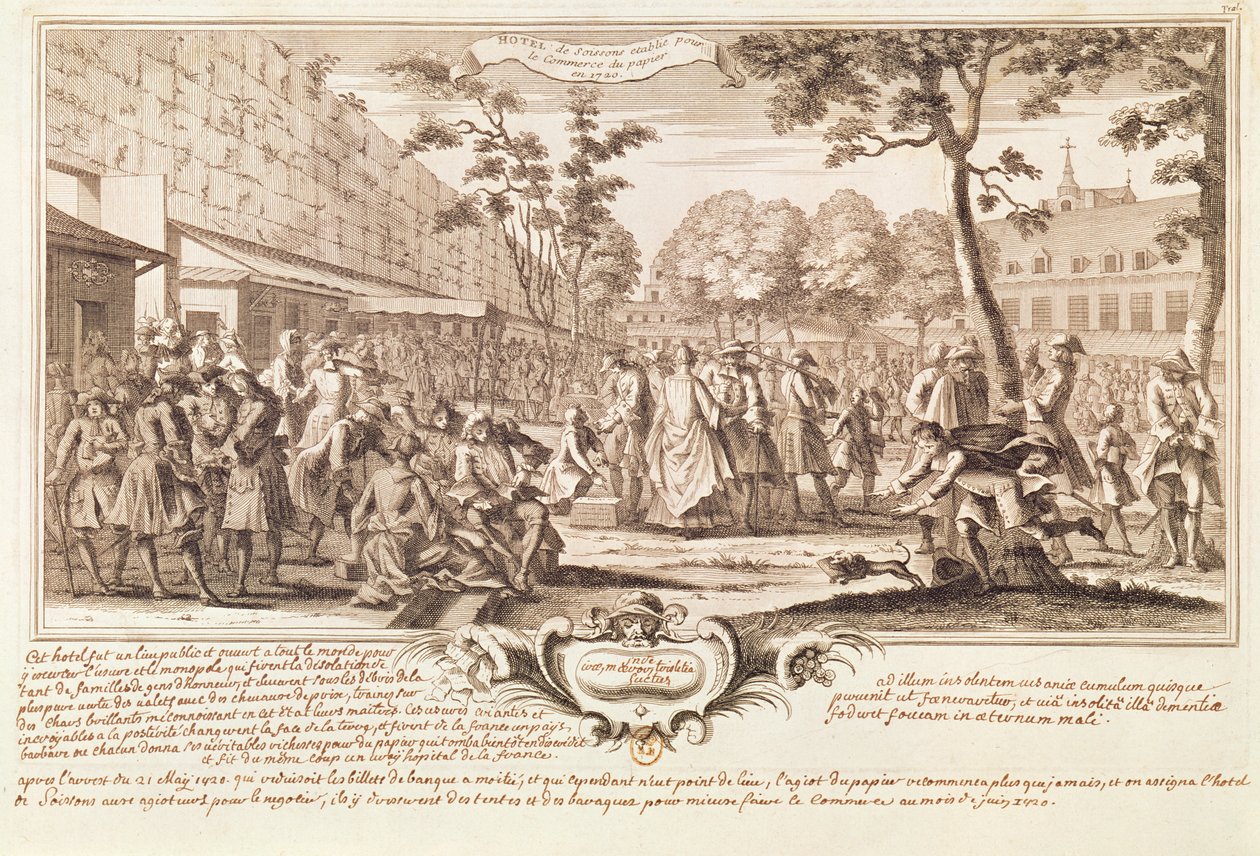 Tral.
HOTEL de Soissons etablie pour
le Commerce du papier
en 1720.
inde
iræ, m
luctus
Cet hotel fut un lieu public et ouvert a tout le monde pour
y exercer l'usure et le monopole qui firent la désolation de
tant de familles de gens d'honneur, et eleverent sous les debris de la
plus pure vertu des valets avec des chevaux de prix, trainez sur
des Chars brillants méconnoissant en cet état leurs maîtres. Ces usures criantes et
incroyables a la postérité changerent la face de la terre, et firent de la france un pays
barbare ou chacun donna ses véritables richesses pour du papier qui tomba bientôt en discredit
et fit du même coup un vray hôpital de la france.
ad illum insolentem vesaniæ cumulum quisque
pervenit ut fæneraretur, et viâ insolitâ illâ dementiæ
foderet foveam in æternum mali.
apres l'arrest du 21 May 1720. qui reduisoit les billets de banque a moitié, et qui cependant n'eut point de lieu, l'agiot du papier recommenca plus que jamais, et on assigna l'hotel
de Soissons aux agioteurs pour le negotier, ils y dresserent des tentes et des baraques pour mieux faire le Commerce au mois de juin 1720.